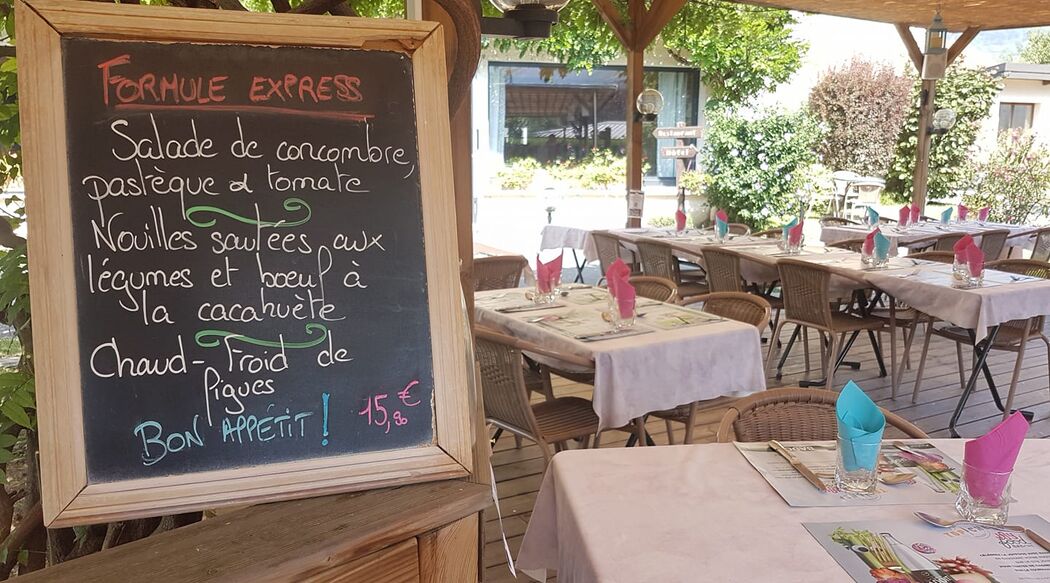 FORMULE EXPRESS
Salade de concombre,
pastèque & tomate
Nouilles sautées aux
légumes et boeuf à
la cacahuète
Chaud-Froid de
figues
BON APPÉTIT! 15,80 €
Restaurant
Hôtel